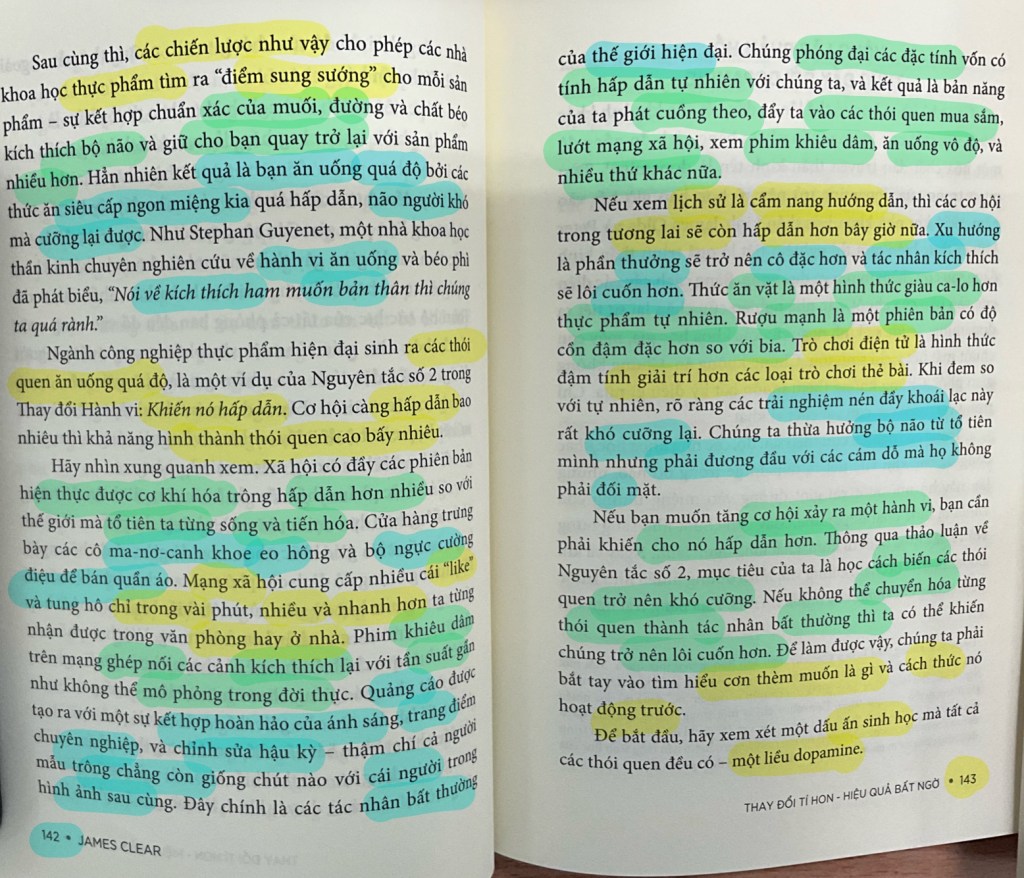 Sau cùng thì, các chiến lược như vậy cho phép các nhà
khoa học thực phẩm tìm ra “điểm sung sướng” cho mỗi sản
phẩm – sự kết hợp chuẩn xác của muối, đường và chất béo
kích thích bộ não và giữ cho bạn quay trở lại với sản phẩm
nhiều hơn. Hẳn nhiên kết quả là bạn ăn uống quá độ bởi các
thức ăn siêu cấp ngon miệng kia quá hấp dẫn, não người khó
mà cưỡng lại được. Như Stephan Guyenet, một nhà khoa học
thần kinh chuyên nghiên cứu về hành vi ăn uống và béo phì
đã phát biểu, “Nói về kích thích ham muốn bản thân thì chúng
ta quá rành.”
Ngành công nghiệp thực phẩm hiện đại sinh ra các thói
quen ăn uống quá độ, là một ví dụ của Nguyên tắc số 2 trong
Thay đổi Hành vi: Khiến nó hấp dẫn. Cơ hội càng hấp dẫn bao
nhiêu thì khả năng hình thành thói quen cao bấy nhiêu.
Hãy nhìn xung quanh xem. Xã hội có đầy các phiên bản
hiện thực được cơ khí hóa trông hấp dẫn hơn nhiều so với
thế giới mà tổ tiên ta từng sống và tiến hóa. Cửa hàng trưng
bày các cô ma-nơ-canh khoe eo hông và bộ ngực cường
điệu để bán quần áo. Mạng xã hội cung cấp nhiều cái “like”
và tung hô chỉ trong vài phút, nhiều và nhanh hơn ta từng
nhận được trong văn phòng hay ở nhà. Phim khiêu dâm
trên mạng ghép nối các cảnh kích thích lại với tần suất gần
như không thể mô phỏng trong đời thực. Quảng cáo được
tạo ra với một sự kết hợp hoàn hảo của ánh sáng, trang điểm
chuyên nghiệp, và chỉnh sửa hậu kỳ – thậm chí cả người
mẫu trông chẳng còn giống chút nào với cái người trong
hình ảnh sau cùng. Đây chính là các tác nhân bất thường
142 • JAMES CLEAR
của thế giới hiện đại. Chúng phóng đại các đặc tính vốn có
tính hấp dẫn tự nhiên với chúng ta, và kết quả là bản năng
của ta phát cuồng theo, đẩy ta vào các thói quen mua sắm,
lướt mạng xã hội, xem phim khiêu dâm, ăn uống vô độ, và
nhiều thứ khác nữa.
Nếu xem lịch sử là cẩm nang hướng dẫn, thì các cơ hội
trong tương lai sẽ còn hấp dẫn hơn bây giờ nữa. Xu hướng
là phần thưởng sẽ trở nên cô đặc hơn và tác nhân kích thích
sẽ lôi cuốn hơn. Thức ăn vặt là một hình thức giàu ca-lo hơn
thực phẩm tự nhiên. Rượu mạnh là một phiên bản có độ
cồn đậm đặc hơn so với bia. Trò chơi điện tử là hình thức
đậm tính giải trí hơn các loại trò chơi thẻ bài. Khi đem so
với tự nhiên, rõ ràng các trải nghiệm nén đầy khoái lạc này
rất khó cưỡng lại. Chúng ta thừa hưởng bộ não từ tổ tiên
mình nhưng phải đương đầu với các cám dỗ mà họ không
phải đối mặt.
Nếu bạn muốn tăng cơ hội xảy ra một hành vi, bạn cần
phải khiến cho nó hấp dẫn hơn. Thông qua thảo luận về
Nguyên tắc số 2, mục tiêu của ta là học cách biến các thói
quen trở nên khó cưỡng. Nếu không thể chuyển hóa từng
thói quen thành tác nhân bất thường thì ta có thể khiến
chúng trở nên lôi cuốn hơn. Để làm được vậy, chúng ta phải
bắt tay vào tìm hiểu cơn thèm muốn là gì và cách thức nó
hoạt động trước.
Để bắt đầu, hãy xem xét một dấu ấn sinh học mà tất cả
các thói quen đều có – một liều dopamine.
THAY ĐỔI TÍ HON - HIỆU QUẢ BẤT NGỜ • 143